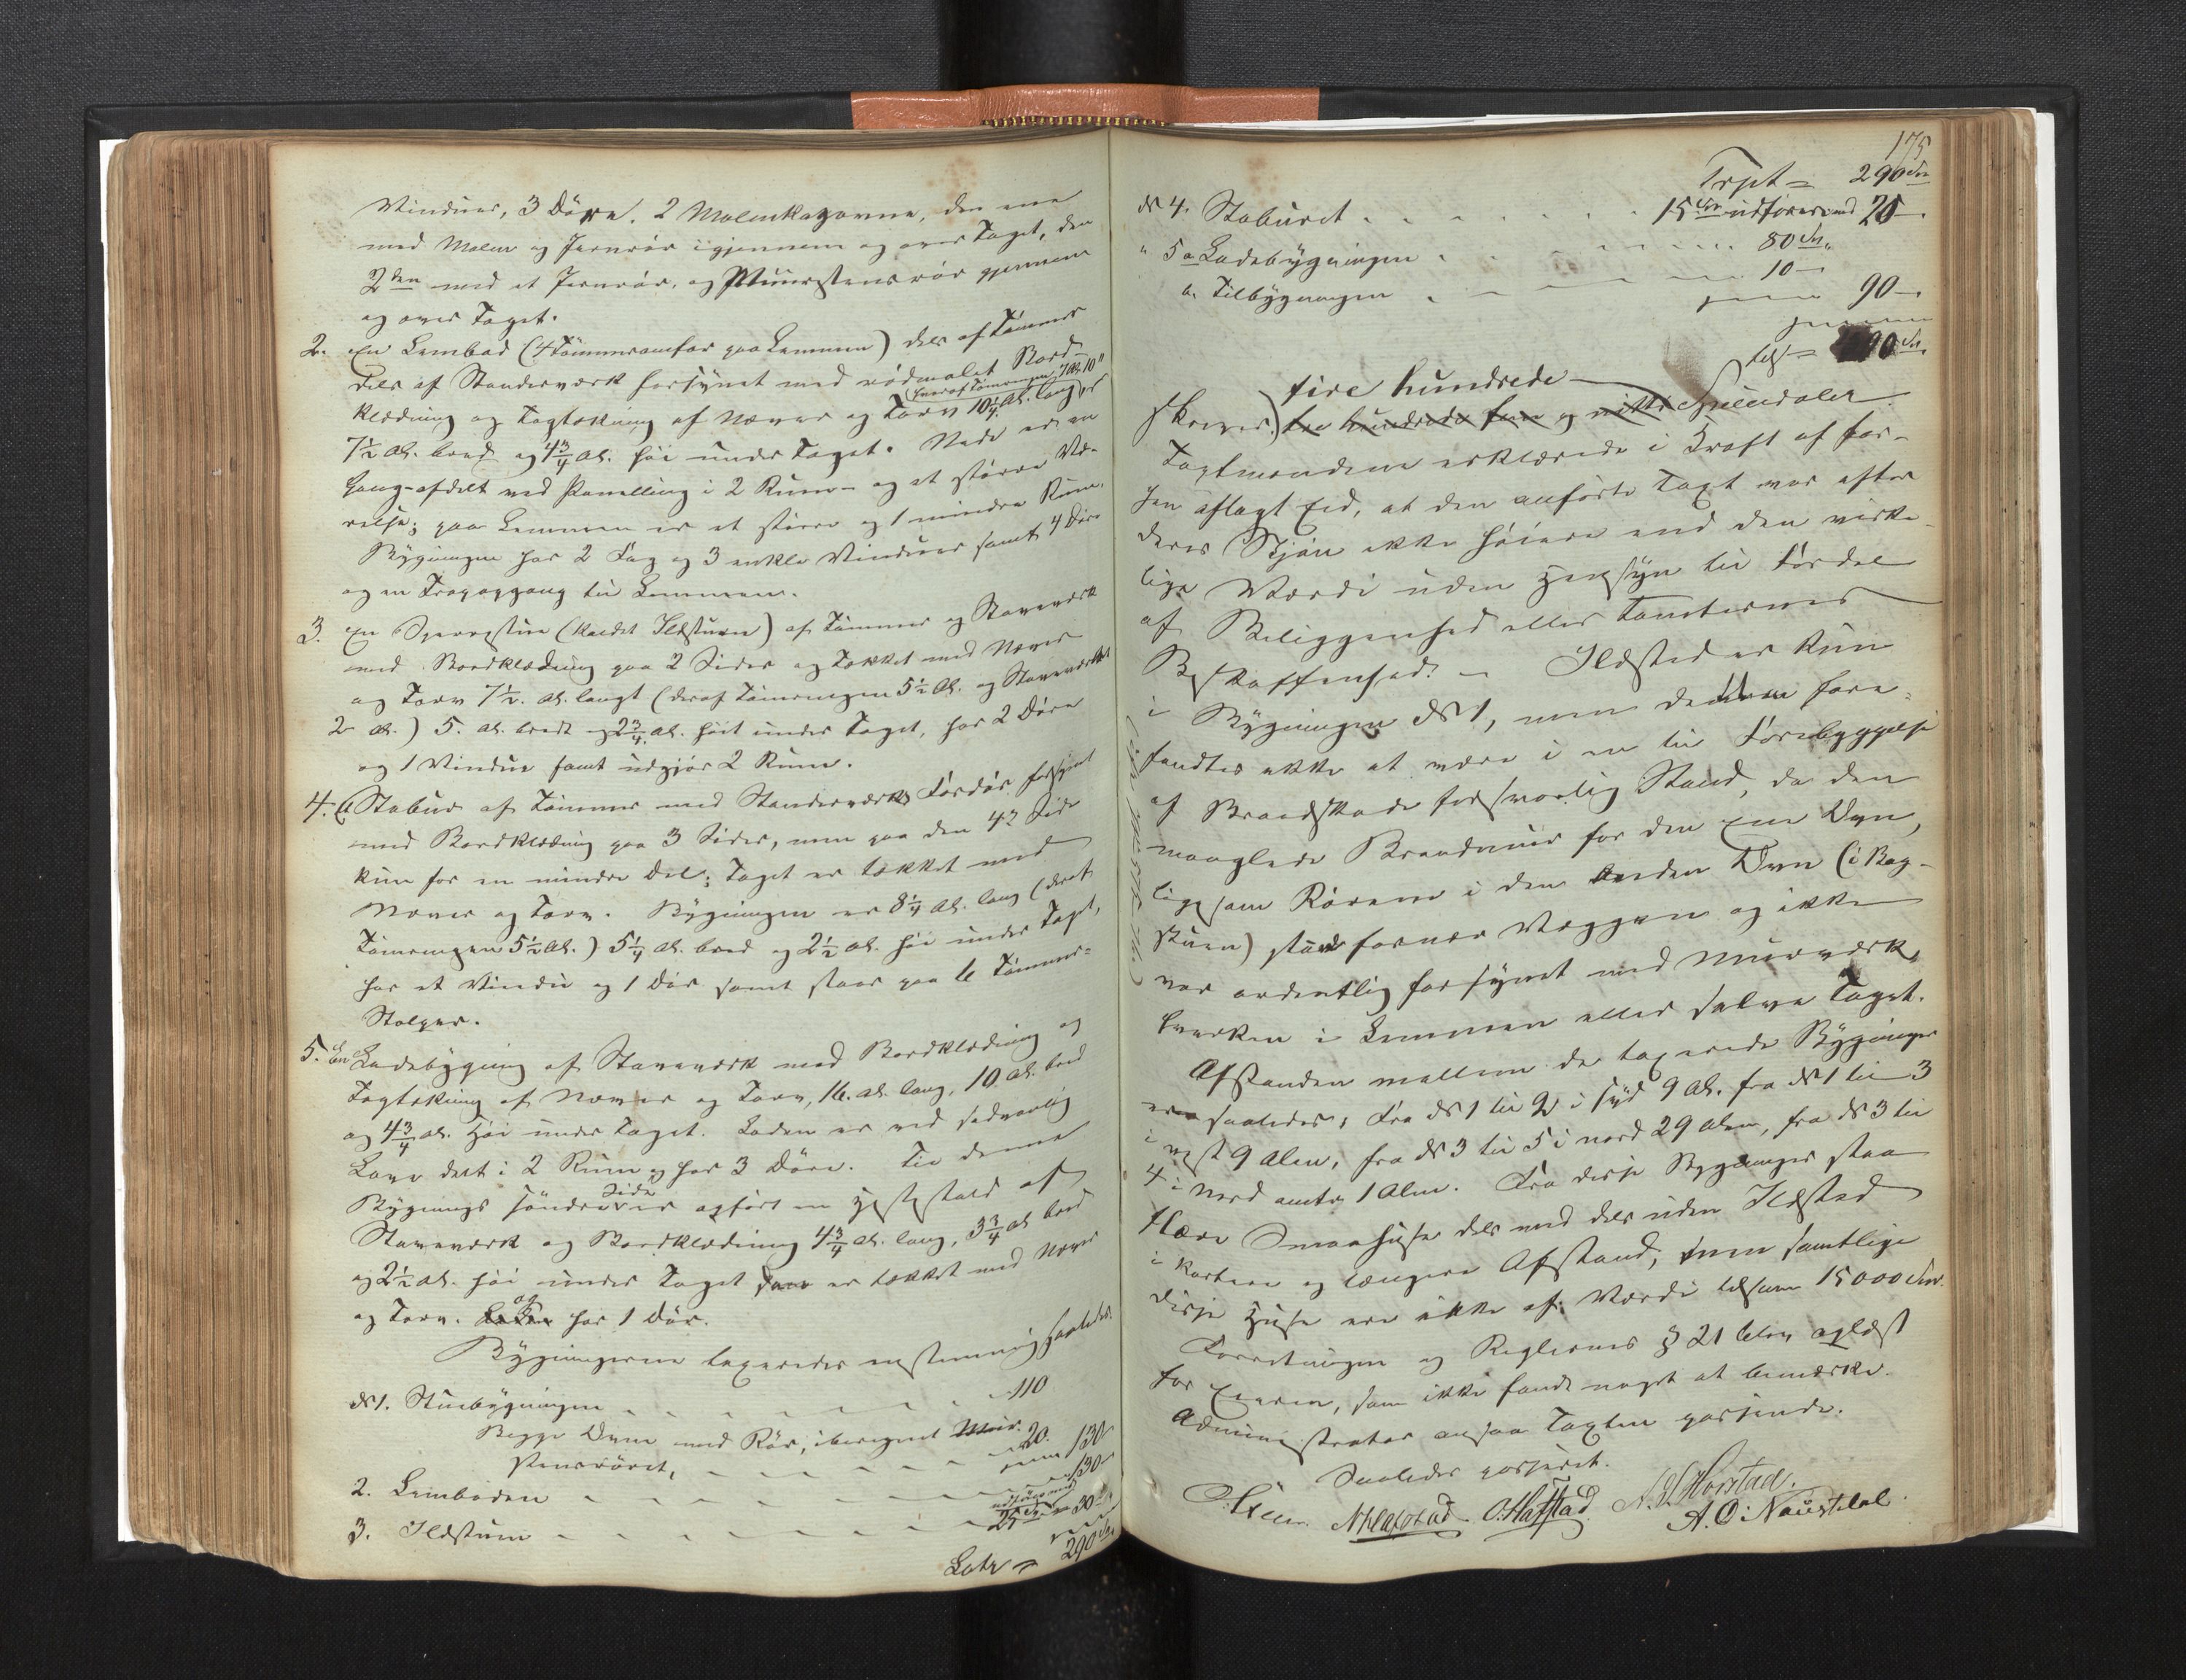 Vinduer, 3 Döre. 2 Malmkakovne, den ene
med Muur og Jernrör igjennem og over Taget, den
2den med et Jernrör, og Muurstensrör gjennem
og over Taget.
2. En Lembod (4 Tömmeromfar paa Lemmen) dels af Tömmer
dels af Standerværk forsynet med rödmalet Bord-
(hvoraf Tömringen 7 Al. 10"
klædning og Tagtækning af Næver og Torv 10 1/4 Al. lang,
7 1/2 Al. bred og 4 3/4 Al. höi under Taget. Nede er en
Gang afdelt ved Panelling i 2 Rum og et större Væ-
relse; paa Lemmen er et större og 1 mindre Rum.
Bygningen har 2 Fag og 3 enkle Vinduer samt 4 Döre
og en Trapopgang til Lemmen.
3. En Sperrestue (kaldet Ildstuen) af Tömmer og Staveværk
med Bordklædning paa 2 Sider og Tækket med Næver
og Torv 7 1/2. Al. langt (deraf Tömringen 5 1/2 Al. og Staveværket
2 Al.) 5. Al. bredt og 2 3/4 Al. höit under Taget, har 2 Döre
og 1 Vindue samt udgjör 2 Rum.
4. Et Stabur af Tömmer med Standerværks Fordör forsynet
med Bordklædning paa 3 Sider, men paa den 4de Side
kun for en mindre Del; Taget er tækket med
Næver og Torv. Bygningen er 8 1/4 Al. lang (deraf
Tömringen 5 1/2 Al.) 5 1/4 Al. bred og 2 1/2 Al. höi under Taget,
har et Vindu og 1 Dör samt staar paa 6 Tömmer-
Stolper.
5. En Ladebygning af Staveværk med Bordklædning og
Tagtækning af Næver og Torv, 16. Al. lang, 10. Al. bred
og 4 3/4 Al. höi under Taget. Laden er ved sædvanlig
Lave delt i 2 Rum og har 3 Döre. Til denne
Side
Bygnings söndre er opfört en Hestestald af
Staveværk og Bordklædning 4 3/4 Al. lang, 3 3/4 Al bred
og 2 1/2 Al. höi under Taget som er tækket med Næver
og
og Torv. har 1 Dör.
Bygningerne taxeredes enstemmig saaledes:
No 1. Stuebygningen - - - 110
Begge Ovne med Rör, iberegnet Muur-
stensröret, - - - 20. 130
2. Lemboden - - - 130
udföres med
3. Ildstuen - - - 25 Spd 30
Lat = 290 Spd.
175
Trpt = 290 Spd
No 4. Staburet - - - 15 Spd udföres med 20 -
" 5 a Ladebygningen - - - 80 Spd.
b. Tilbygningen - - - 10 -
90 -
tils = 90 Spd.
fire hundrede
skriver) tre hundrede fem og nitti Speciedaler
Taxtmændene erklærede i Kraft af for-
hen aflagt Eed, at den anförte Taxt var efter
deres Skjön ikke höiere end den virke-
lige Værdi uden Hensyn til Fordel
af Beliggenhed eller Tomternes
Beskaffenhed. - Ildsted er kun
i Bygningen No 1, men denne fore-
fandtes ikke at være i en til Forebyggelse
af Brandskade forsvarlig Stand, da den
manglede Brandmuur for den ene Ovn,
ligesom Rörene i den anden Ovn (i Bag-
stuen) stode for nær Væggen og ikke
var ordentlig forsynet med Muurværk,
hverken i Lemmen eller selve Taget.
Afstanden mellem de taxerede Bygninger
ere saaledes: Fra No 1 til 2 i Syd 9 Al. fra No 1 til 3
i vest 9 Alen, fra No 3 til 5 i nord 29 Alen, fra No 3 til
4 i Nord 1 Alen. Fra disse Bygninger staa
flere Smaahuse dels med dels uden Ildsted
i kortere og længere Afstand, men samtlige
disse Huse ere ikke af Værdi tilsam 15000 Spd.
Forretningen og Reglernes § 21 blev oplæst
for Eieren, som ikke fandt noget at bemærke.
Administrator ansaa Taxten passende.
Saaledes passeret.
O. Hafstad N. J. Horstad.
A. O. Naustdal.